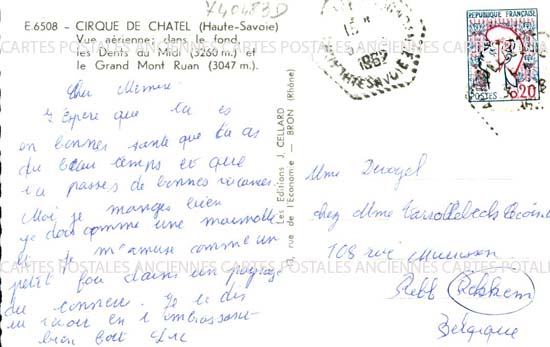 X40483D
E.6508 - CIRQUE DE CHATEL (Haute-Savoie)
Vue aérienne: dans le fond,
les Dents du Midi (3260 m.) et
le Grand Mont Ruan (3047 m.)
Cher
J'Espère que tu es
en bonnes santé que tu as
du beau temps et que
tu passes de bonnes vacances.
Moi je manges bien
je dors comme une marmotte
et je m'amuse comme un
petit fou dans un paysage
du tonnerre. Je te dis
au revoir en t'embrassant
bien fort
Editions J. CELLARD
3, rue de l'Economie - BRON (Rhône)
1962
HAUTE SAVOIE
REPUBLIQUE FRANÇAISE
POSTES 0,20
Mme
chez Mme
108 rue
Belgique
CARTES POSTALES ANCIENNES CARTES POSTALES ANCIENNES CARTES POSTALES ANCIENNES